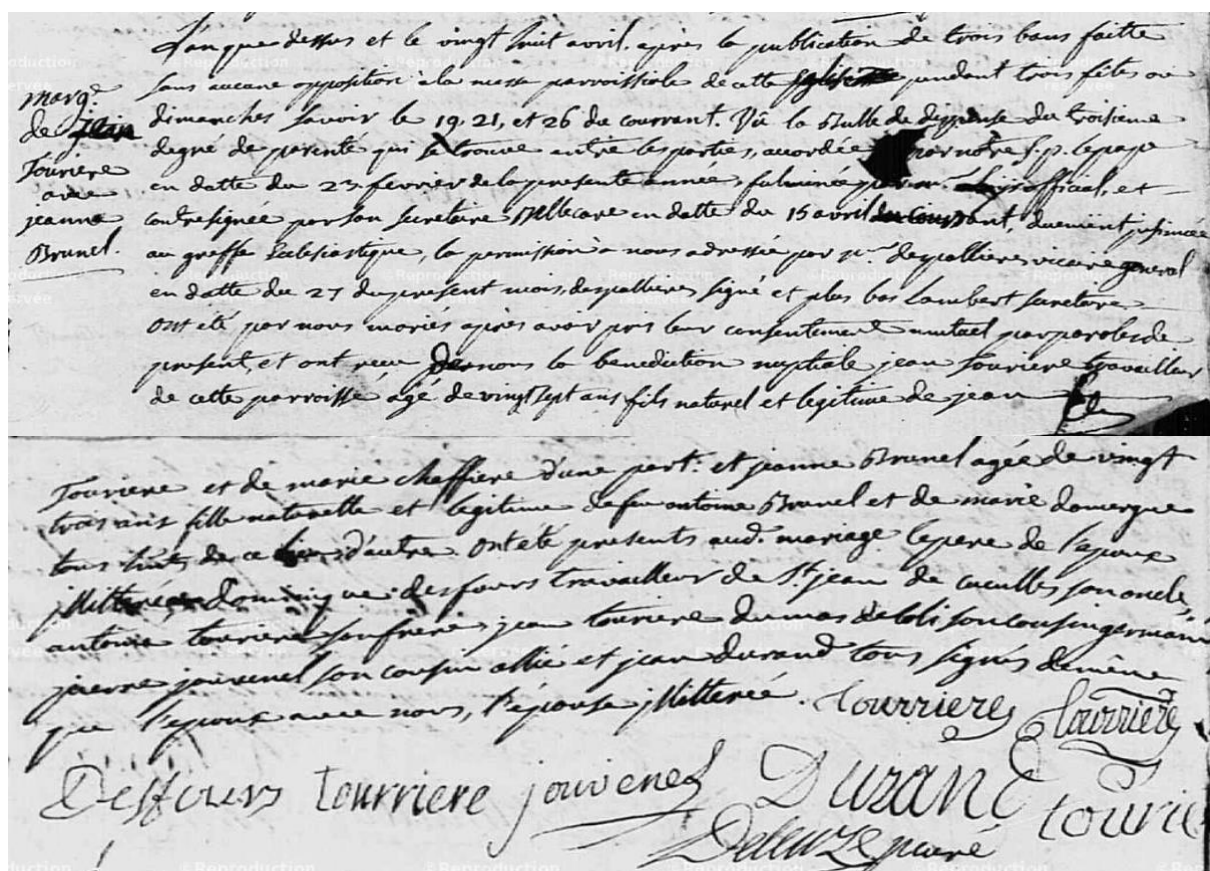 marg.e
de Jean
Touriere
avec
jeanne
Brunel.
L'an que dessus et le vingt huit avril, apres la publication de trois bans faitte
sans aucune opposition à la messe parroissiale de cette pendant trois fêtes ou
dimanches savoir le 19, 21, et 26 du courrant. Vû la Bulle de dispense du troisieme
degré de parenté qui se trouve entre les parties, accordée par notre S. p. le pape
en datte du 23 fevrier de la presente année, fulminée par mr. official, et
contresignée par son secretaire Bellecave en datte du 15 avril du courrant, duement insinuée
au greffe Ecclesiastique, la permission à nous adressée par Mr. despallieres vicaire general
en datte du 27 du present mois, despallieres signé et plus bas Lambert secretaire
ont été par nous mariés après avoir pris leur consentement mutuel par paroles de
present, et ont reçu de nous la benediction nuptiale jean touriere travailleur
de cette parroisse agé de vingt sept ans fils naturel et legitime de jean
Touriere et de marie cheffiere d'une part. et jeanne Brunel agée de vingt
trois ans fille naturelle et legitime de feu antoine Brunel et de marie domergue
tous de ce lieu d'autre. ont été presents aud. mariage le pere de l'epoux
illitteré, dominique desfours travailleur de St jean de cuculles son oncle,
antoine touriere son frère, jean touriere du mas de loli son cousin germain
pierre jouvenel son cousin allié et jean durand tous signés de même
que l'epoux avec nous, l'épouse illitterée. tourrieres tourriere
Desfours tourriere jouvenel Durand tourie
Deleuze prieuré